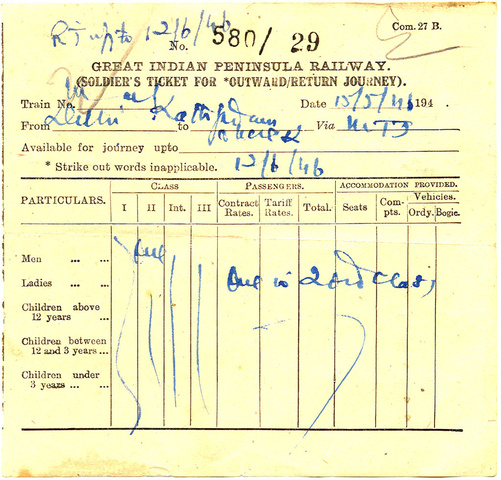 RJ upto 12/6/46
No. 580/ 29
Com. 27 B.
GREAT INDIAN PENINSULA RAILWAY.
(SOLDIER'S TICKET FOR *OUTWARD/RETURN JOURNEY).
Train No. Date 15/5/46 194
From Delhi to Kathgodam Via MTJ
Available for journey upto
* Strike out words inapplicable. 12/6/46
PARTICULARS. CLASS PASSENGERS. ACCOMMODATION PROVIDED.
I II Int. III Contract Rates. Tariff Rates. Total. Seats Compts. Vehicles. Ordy. Bogie.
Men ... ... One
Ladies ... ... One in 2nd Class
Children above 12 years ...
Children between 12 and 3 years ...
Children under 3 years ... ...